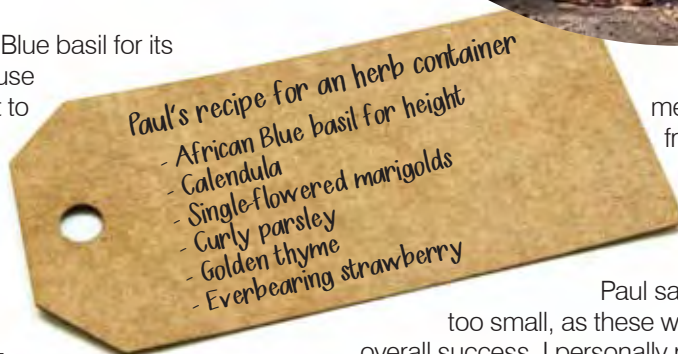 Blue basil for its
use
to
Paul's recipe for an herb container
- African Blue basil for height
- Calendula
- Single-flowered marigolds
- Curly parsley
- Golden thyme
- Everbearing strawberry
too small, as these
overall success. I personally
Paul